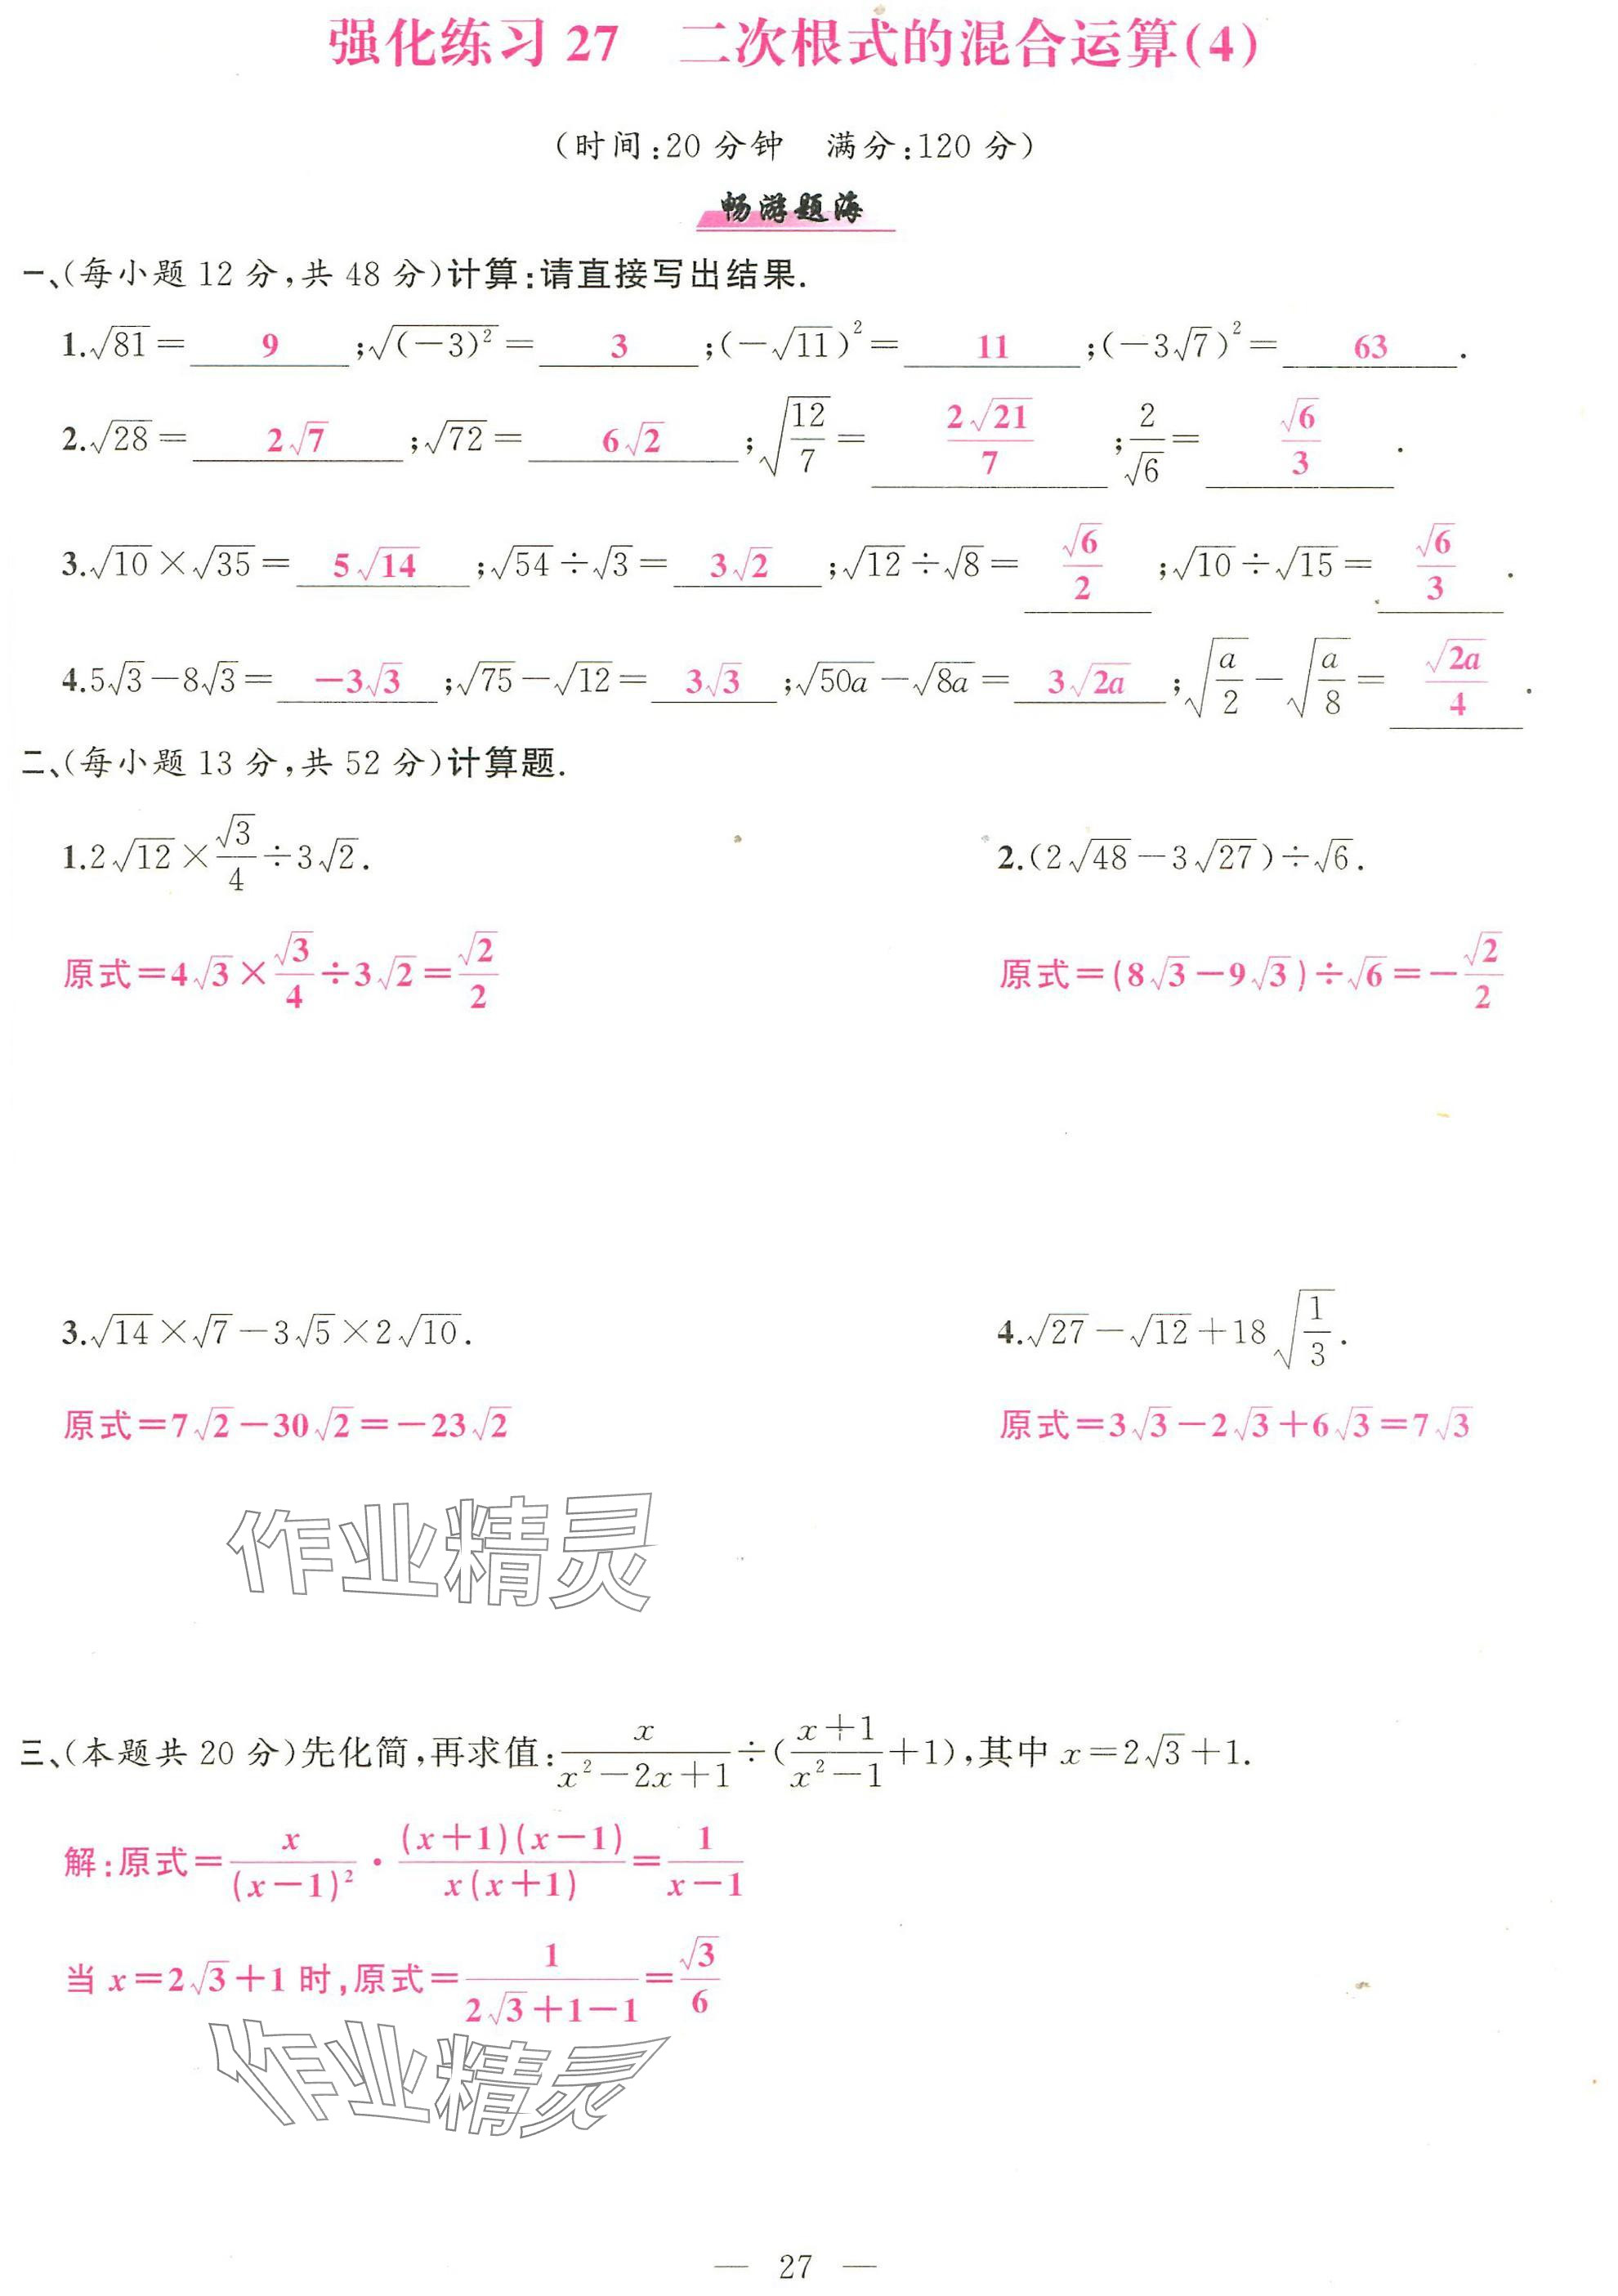 强化练习 27　二次根式的混合运算(4)
(时间:20 分钟　满分:120 分)
畅游题海
一、(每小题 12 分,共 48 分)计算:请直接写出结果.
1.√81= 9 ;√(-3)²= 3 ;(-√11)²= 11 ;(-3√7)²= 63 .
2.√28= 2√7 ;√72= 6√2 ;√(12/7)= 2√21/7 ;2/√6= √6/3 .
3.√10×√35= 5√14 ;√54÷√3= 3√2 ;√12÷√8= √6/2 ;√10÷√15= √6/3 .
4.5√3-8√3= -3√3 ;√75-√12= 3√3 ;√50a-√8a= 3√2a ;√(a/2)-√(a/8)= √2a/4 .
二、(每小题 13 分,共 52 分)计算题.
1.2√12×√3/4÷3√2.　2.(2√48-3√27)÷√6.
原式=4√3×√3/4÷3√2=√2/2　原式=(8√3-9√3)÷√6=-√2/2
3.√14×√7-3√5×2√10.　4.√27-√12+18√(1/3).
原式=7√2-30√2=-23√2　原式=3√3-2√3+6√3=7√3
作业精灵
三、(本题共 20 分)先化简,再求值:x/(x²-2x+1)÷((x+1)/(x²-1)+1),其中 x=2√3+1.
解:原式=x/(x-1)²·(x+1)(x-1)/x(x+1)=1/(x-1)
当 x=2√3+1 时,原式=1/(2√3+1-1)=√3/6
作业精灵
— 27 —